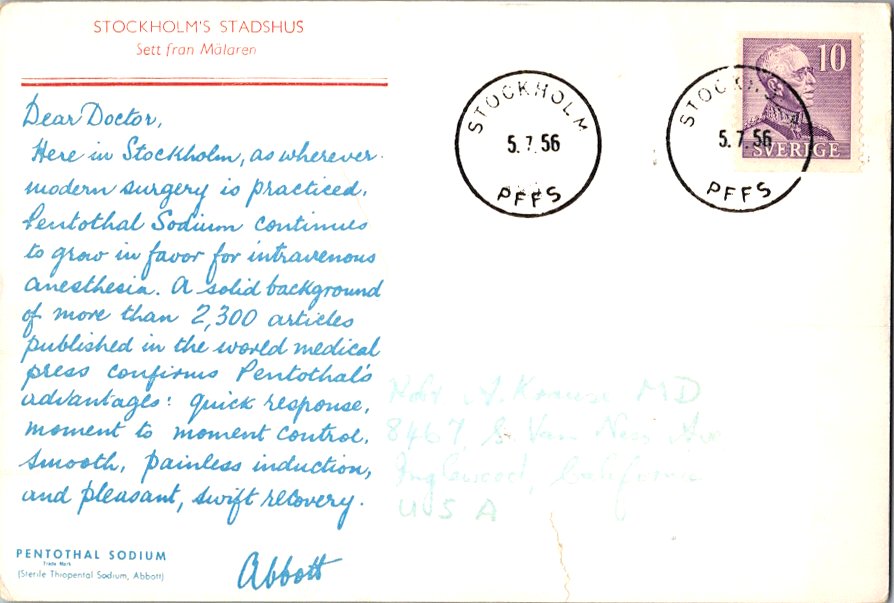 STOCKHOLM'S STADSHUS
Sett från Mälaren
Dear Doctor,
Here in Stockholm, as wherever
modern surgery is practiced,
Pentothal Sodium continues
to grow in favor for intravenous
anesthesia. A solid background
of more than 2,300 articles
published in the world medical
press confirms Pentothal's
advantages: quick response,
moment to moment control,
smooth, painless induction,
and pleasant, swift recovery.
Abbott
PENTOTHAL SODIUM
Trade Mark
(Sterile Thiopental Sodium, Abbott)
STOCKHOLM
5.7.56
PFFS
STOCKH
5.7.56
PFFS
10
SVERIGE
A. MD
8467 S Van Ness Ave
Inglewood, California
USA